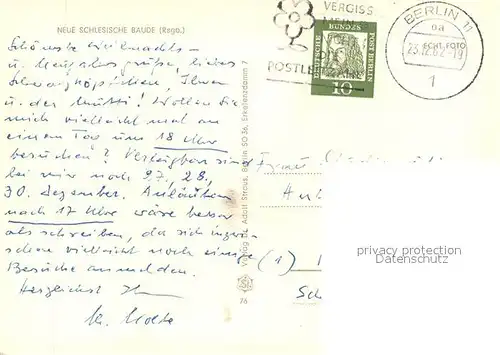 NEUE SCHLESISCHE BAUDE (Rsgb.)
Schönste Weihnachts-
u. Neujahrsgrüße, liebes
Ihnen
u. der Mutti! Wollen Sie
mich vielleicht mal an
einem Tag um 18 Uhr
besuchen? Verfügbar sind
bei mir noch 27., 28.,
30. Dezember. Anläuten
nach 17 Uhr wäre besser
als schreiben, da sich
schon vielleicht noch einige
Besuche anmelden.
Herzlichst Ihr
Verlag Dr. Adolf Straus, Berlin SO 36, Erkelenzdamm 7
76
VERGISS
MEIN
NICHT
POSTLEITZAHL
DEUTSCHE
POST BERLIN
10
BERLIN 11
oa
ECHT FOTO
23.12.62-19
1
Frau
(1)
privacy protection
Datenschutz